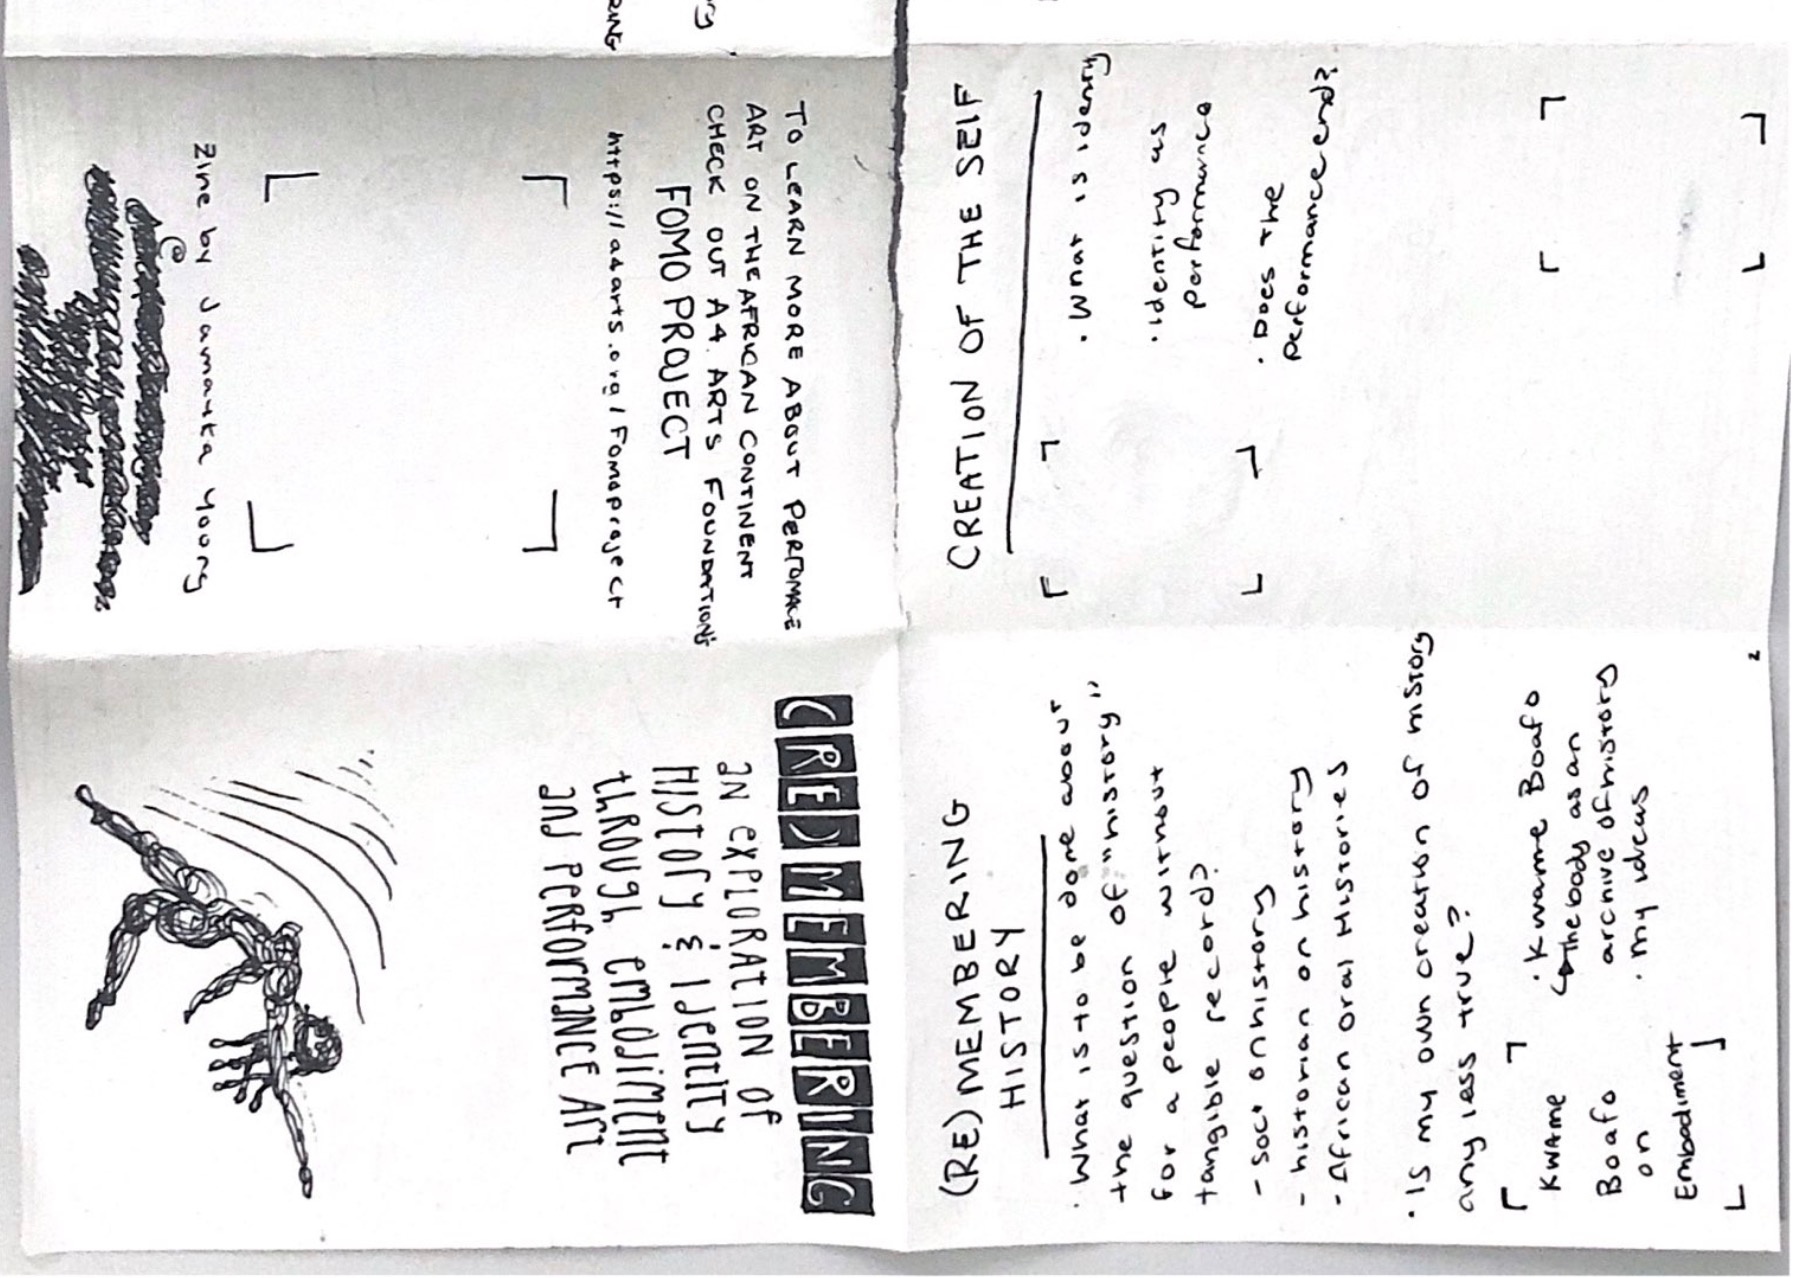 (RE)MEMBERING
AN EXPLORATION OF
HISTORY & IDENTITY
THROUGH EMBODIMENT
AND PERFORMANCE ART
(RE)MEMBERING
HISTORY
· What is to be done about
the question of "history"
for a people without
tangible record?
- soc' on history
- historian on history
- African oral Histories
· Is my own creation of history
any less true?
KWAME
Boafo
on
Embodiment
· Kwame Boafo
↳ the body as an
archive of history
· my ideas
2
CREATION OF THE SELF
· What is identity
· Identity as
performance
· Does the
performance end?
TO LEARN MORE ABOUT PERFOMACE
ART ON THE AFRICAN CONTINENT
CHECK OUT A4 ARTS FOUNDATION'S
FOMO PROJECT
https://a4arts.org/Fomoproject
Zine by Jamaika Young
@